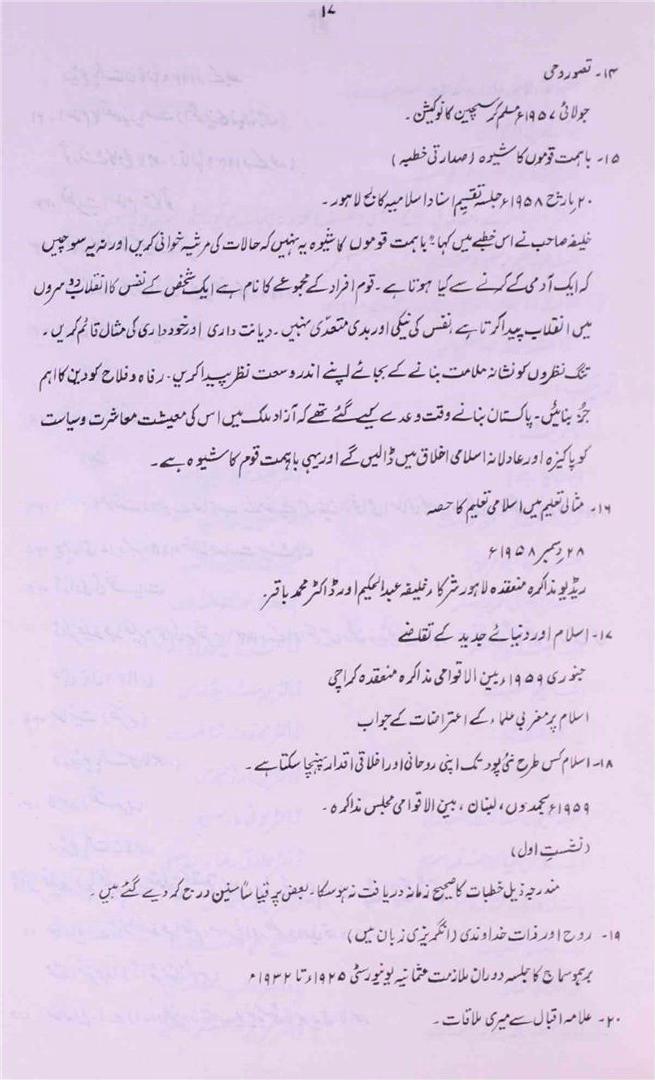 ۱۷
۱۴۔ تصور وحی
جولائی ۱۹۵۷ء مسلم کرسچین کانوکیشن۔
۱۵۔ باہمت قوموں کا شیوہ (صدارتی خطبہ)
۲۰ مارچ ۱۹۵۸ء جلسہ تقسیم اسناد اسلامیہ کالج لاہور۔
خلیفہ صاحب نے اس خطبے میں کہا "باہمت قوموں کا شیوہ یہ نہیں کہ حالات کی مرثیہ خوانی کریں اور نہ یہ سوچیں
کہ ایک آدمی کے کرنے سے کیا ہوتا ہے۔ قوم افراد کے مجموعے کا نام ہے ایک شخص کے نفس کا انقلاب دوسروں
میں انقلاب پیدا کرتا ہے نفس کی نیکی اور بدی متعدی نہیں۔ دیانت داری اور خودداری کی مثال قائم کریں۔
تنگ نظروں کو نشانہ ملامت بنانے کے بجائے اپنے اندر وسعت نظر پیدا کریں۔ رفاہ و فلاح کو دین کا اہم
جزُ بنائیں۔ پاکستان بنانے وقت وعدے کیے گئے تھے کہ آزاد ملک میں اس کی معیشت معاشرت و سیاست
کو پاکیزہ اور عادلانہ اسلامی اخلاق میں ڈالیں گے اور یہی باہمت قوم کا شیوہ ہے۔
۱۶۔ مثالی تعلیم میں اسلامی تعلیم کا حصہ
۲۸ دسمبر ۱۹۵۸ء
ریڈیو مذاکرہ منعقدہ لاہور شرکاء خلیفہ عبدالحکیم اور ڈاکٹر محمد باقر
۱۷۔ اسلام اور دنیائے جدید کے تقاضے
جنوری ۱۹۵۹ء بین الاقوامی مذاکرہ منعقدہ کراچی
اسلام پر مغربی علماء کے اعتراضات کے جواب
۱۸۔ اسلام کس طرح نئی پود تک اپنی روحانی اور اخلاقی اقدار پہنچا سکتا ہے۔
۱۹۵۹ء بحمدوں، لبنان، بین الاقوامی مجلس مذاکرہ۔
(نشستِ اول)
مندرجہ ذیل خطبات کا صحیح زمانہ دریافت نہ ہو سکا۔ بعض پر قیاساً سنین درج کر دیے گئے ہیں۔
۱۹۔ روح اور ذات خداوندی (انگریزی زبان میں)
برہمو سماج کا جلسہ دوران ملازمت عثمانیہ یونیورسٹی ۱۹۲۵ء تا ۱۹۳۲ء
۲۰۔ علامہ اقبال سے میری ملاقات۔